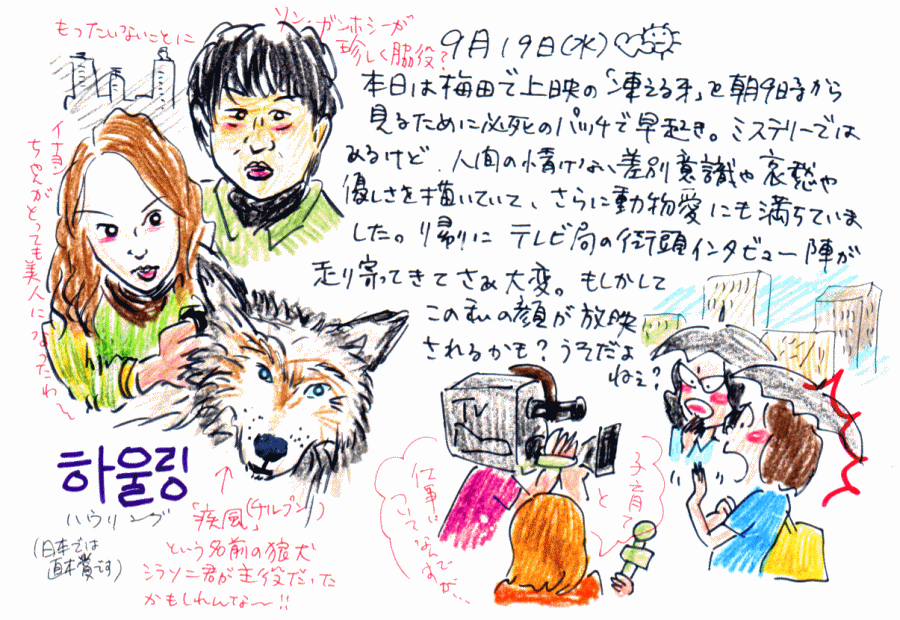 もったいないことに
ソン・ガンホシーが
珍しく脇役?
9月19日(水)
本日は梅田で上映の「凍える牙」を朝9時から
見るために必死のパッチで早起き。ミステリーでは
あるけど、人間の情けない差別意識や哀愁や
優しさを描いていて、さらに動物愛にも満ちていま
した。帰りに テレビ局の街頭インタビュー陣が
走り寄ってきてさあ大変。もしかして
この私の顔が放映
されるかも?うそだよ
ねぇ?
イナヨン
ちゃんがとっても美人になったわ〜
하울링
ハウリング
(日本では
直木賞です)
「疾風」(チルプン)
という名前の狼犬
シラソニ君が主役だった
かもしれんな〜!!
TV
子育て
と
仕事に
ついてなんですが、…